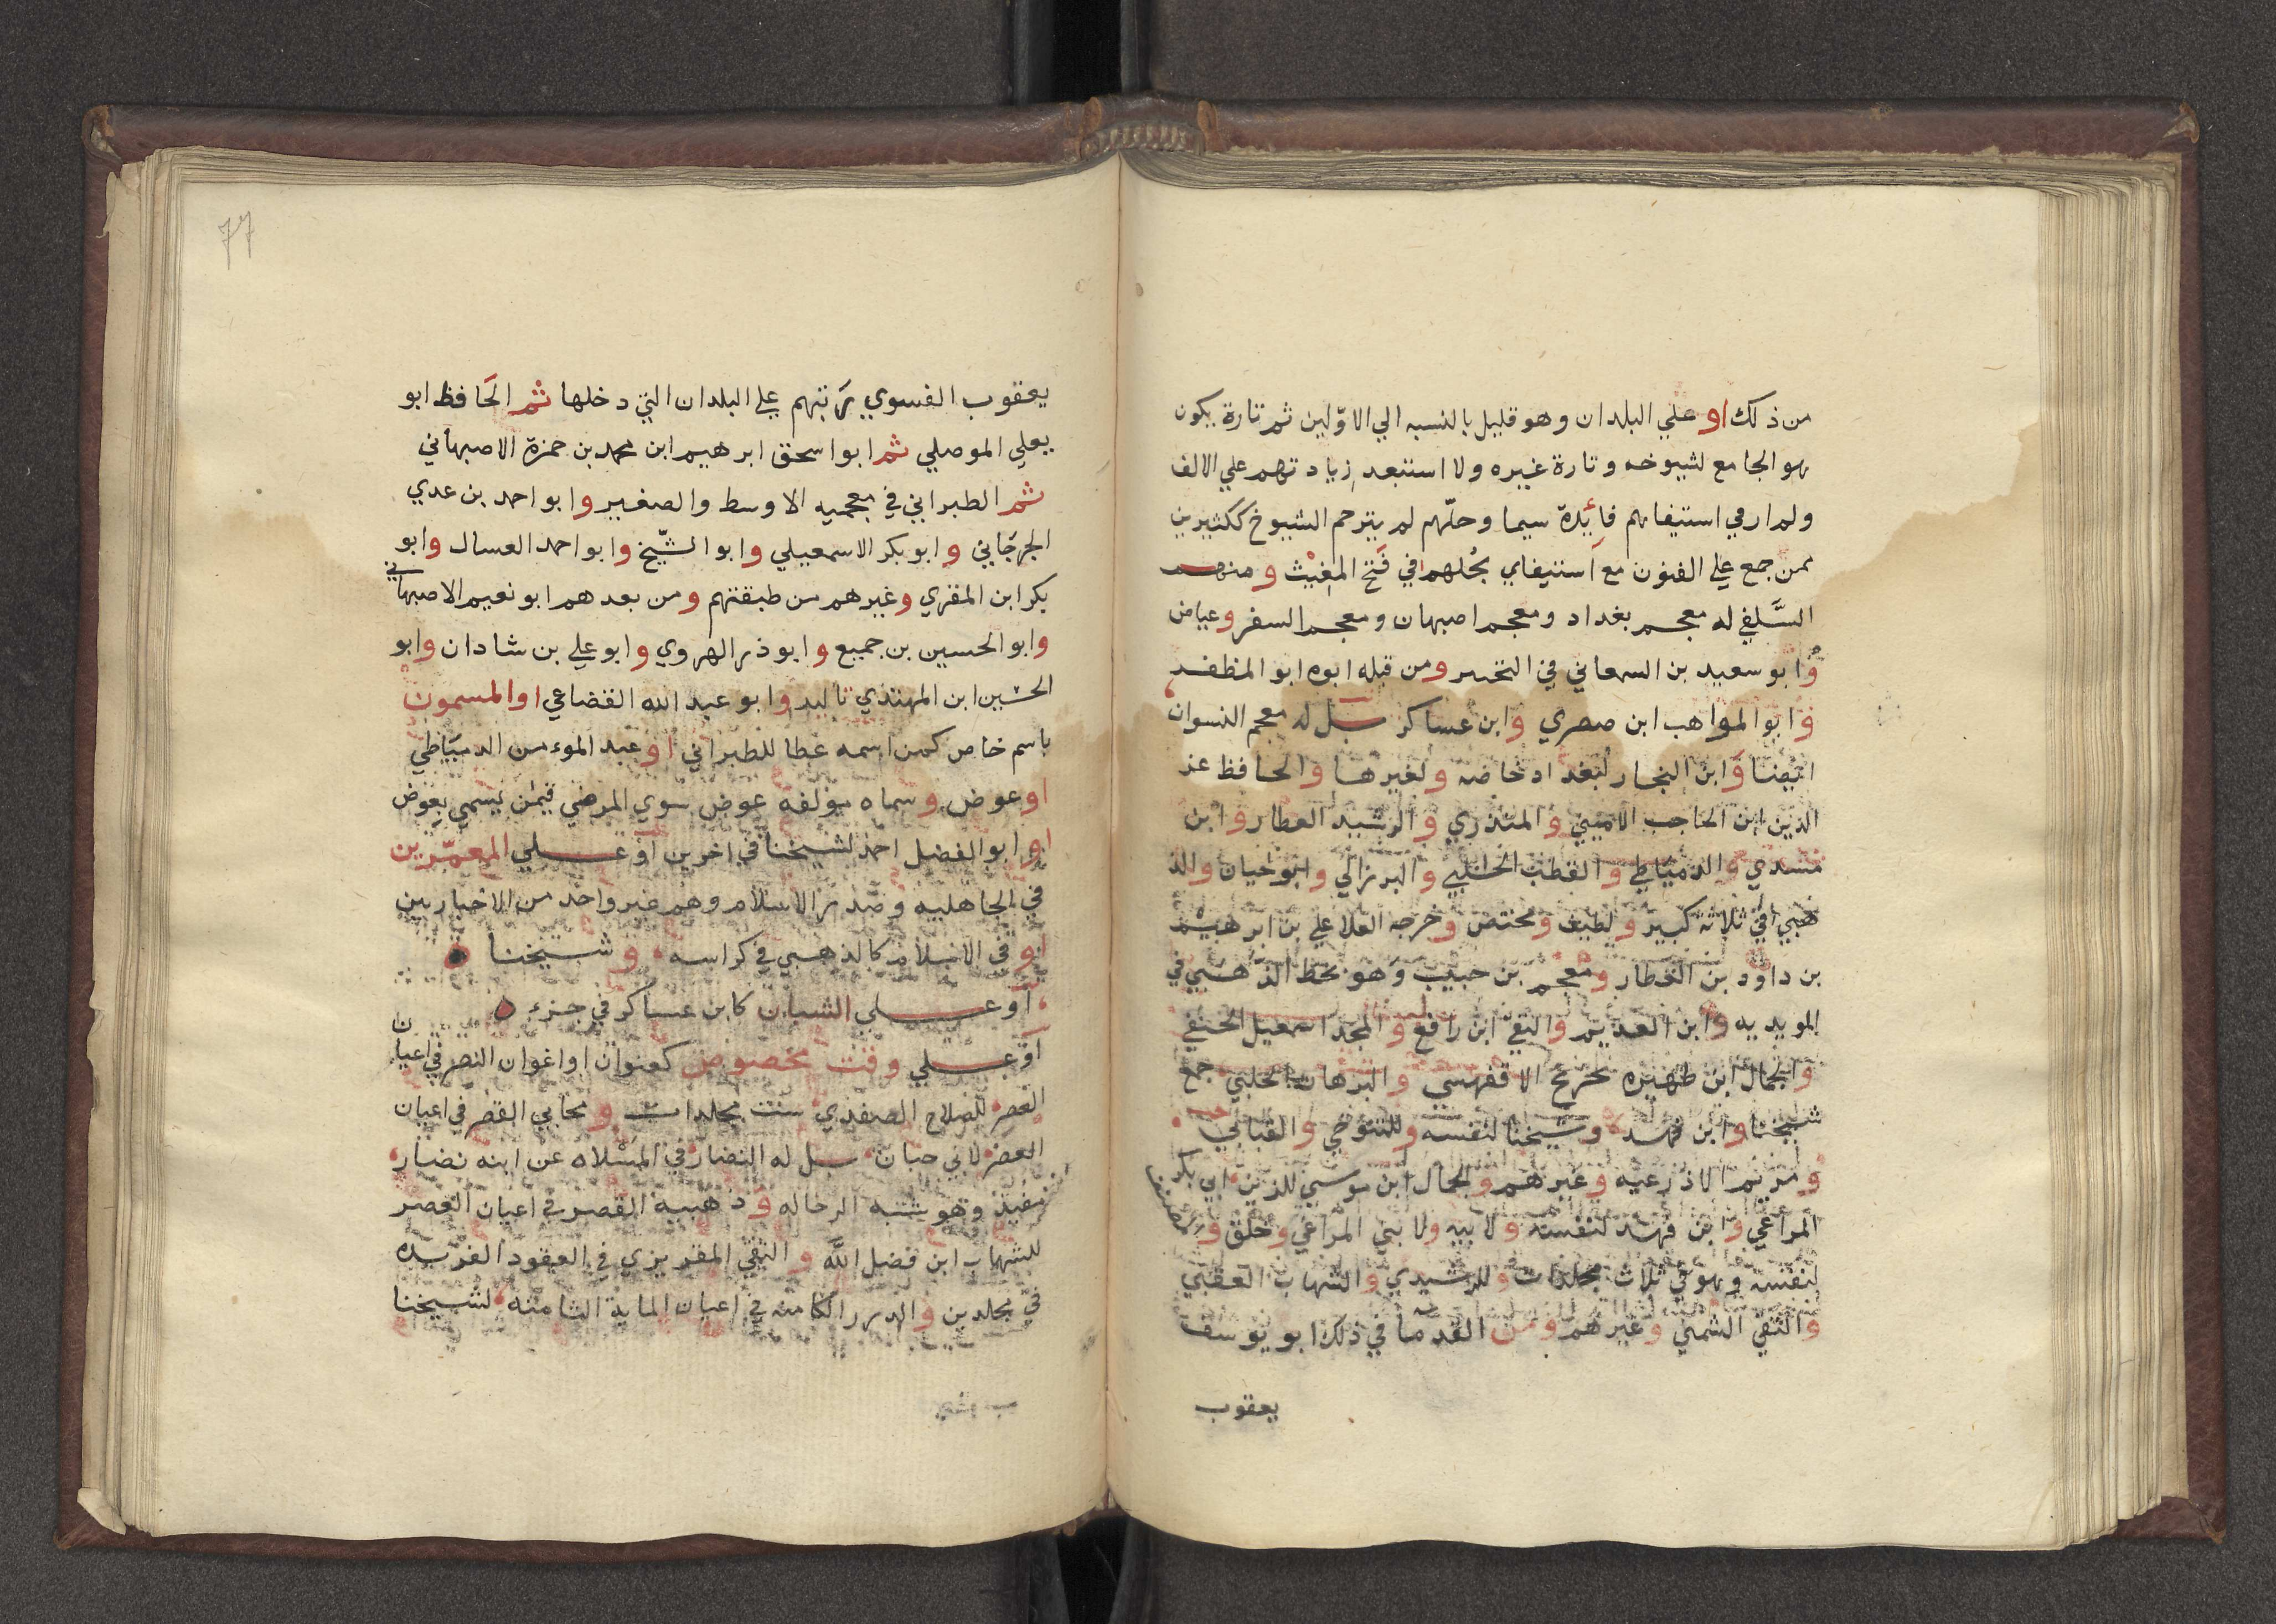 من ذلك او علي البلدان وهو قليل بالنسبه الي الاوّلين ثم تارة يكون
هو الجامع لشيوخه وتارة غيره ولا استبعد زيادتهم علي الالف
ولم ار في استيفائهم فائدة سيما وجلّهم لم يترجم الشيوخ ككثيرين
ممن جمع علي الفنون مع استيفاي بجلهم في فتح المغيث ومنهم
السَّلفي له معجم بغداد ومعجم اصبهان ومعجم السفر وعياض
وابو سعيد بن السمعاني في التحبير ومن قبله ابوه ابو المظفر
وابو المواهب ابن صصري وابن عساكر بل له معجم النسوان
ايضا وابن النجار لبغداد خاصه ولغيرها والحافظ عز
الدين ابن الحاجب الاميني والمنذري والرشيد العطار وابن
مسدي والدمياطي والقطب الحلبي والبرزالي وابو حيان والذ
هبي في ثلاثة كبير ولطيف ومختص وخرجه العلا علي بن ابرهيم
بن داود بن العطار ومعجم بن حبيب وهو بخط الذهبي في
المويديه وابن العديم والتقي ابن رافع والمجد اسمعيل الحنفي
والجمال ابن ظهيره تخريج الاقفهسي والبرهان الحلبي جمع
شيخنا وابن فهد وشيخنا لنفسه وللتنوخي والقبابي
ومريم الاذرعيه وغيرهم والجمال ابن موسي للزين ابي بكر
المراغي وابن فهد لنفسه ولابيه ولابي المراغي وخلق وللمصنف
لنفسه وهو في ثلاث مجلدات وللرشيدي والشهاب العقبي
والتقي الشمني وغيرهم ومن القدما في ذلك ابو يوسف
يعقوب
77
يعقوب الفسوي رتبهم علي البلدان التي دخلها ثم الحافظ ابو
يعلي الموصلي ثم ابو اسحق ابرهيم ابن محمد بن حمزة الاصبهاني
ثم الطبراني في معجميه الاوسط والصغير وابو احمد بن عدي
الجرجاني وابو بكر الاسمعيلي وابو الشّيخ وابو احمد العسال وابو
بكر ابن المقري وغيرهم من طبقتهم ومن بعدهم ابو نعيم الاصبهاني
وابو الحسين بن جميع وابو ذر الهروي وابو علي بن شادان وابو
الحسين ابن المهتدي تاليد وابو عبد الله القضاعي او المسمون
باسم خاص كمن اسمه عطا للطبراني او عبد المومن الدمياطي
او عوض وسماه مولفه عوض سوي المرضي فيمن يسمي بعوض
او ابو الفضل احمد لشيخنا في اخرين او علي المعمّرين
في الجاهليه وصدر الاسلام وهم غير واحد من الاخباريين
او في الاسلام كالذهبي في كراسه وشيخنا
او علي الشبان كابن عساكر في جزء
او علي وقت مخصوص كعنوان او اغوان النصر في اعيان
العصر للصلاح الصفدي ست مجلدات ومجاني القصر في اعيان
العصر لابي حيان بل له النضار في المسلاه عن ابنه نضار
مفيد وهو شبه الرحاله وذهبية القصر في اعيان العصر
للشهاب ابن فضل الله والتقي المقريزي في العقود الفريده
في مجلدين والدرر الكامنه في اعيان الماية الثامنه لشيخنا